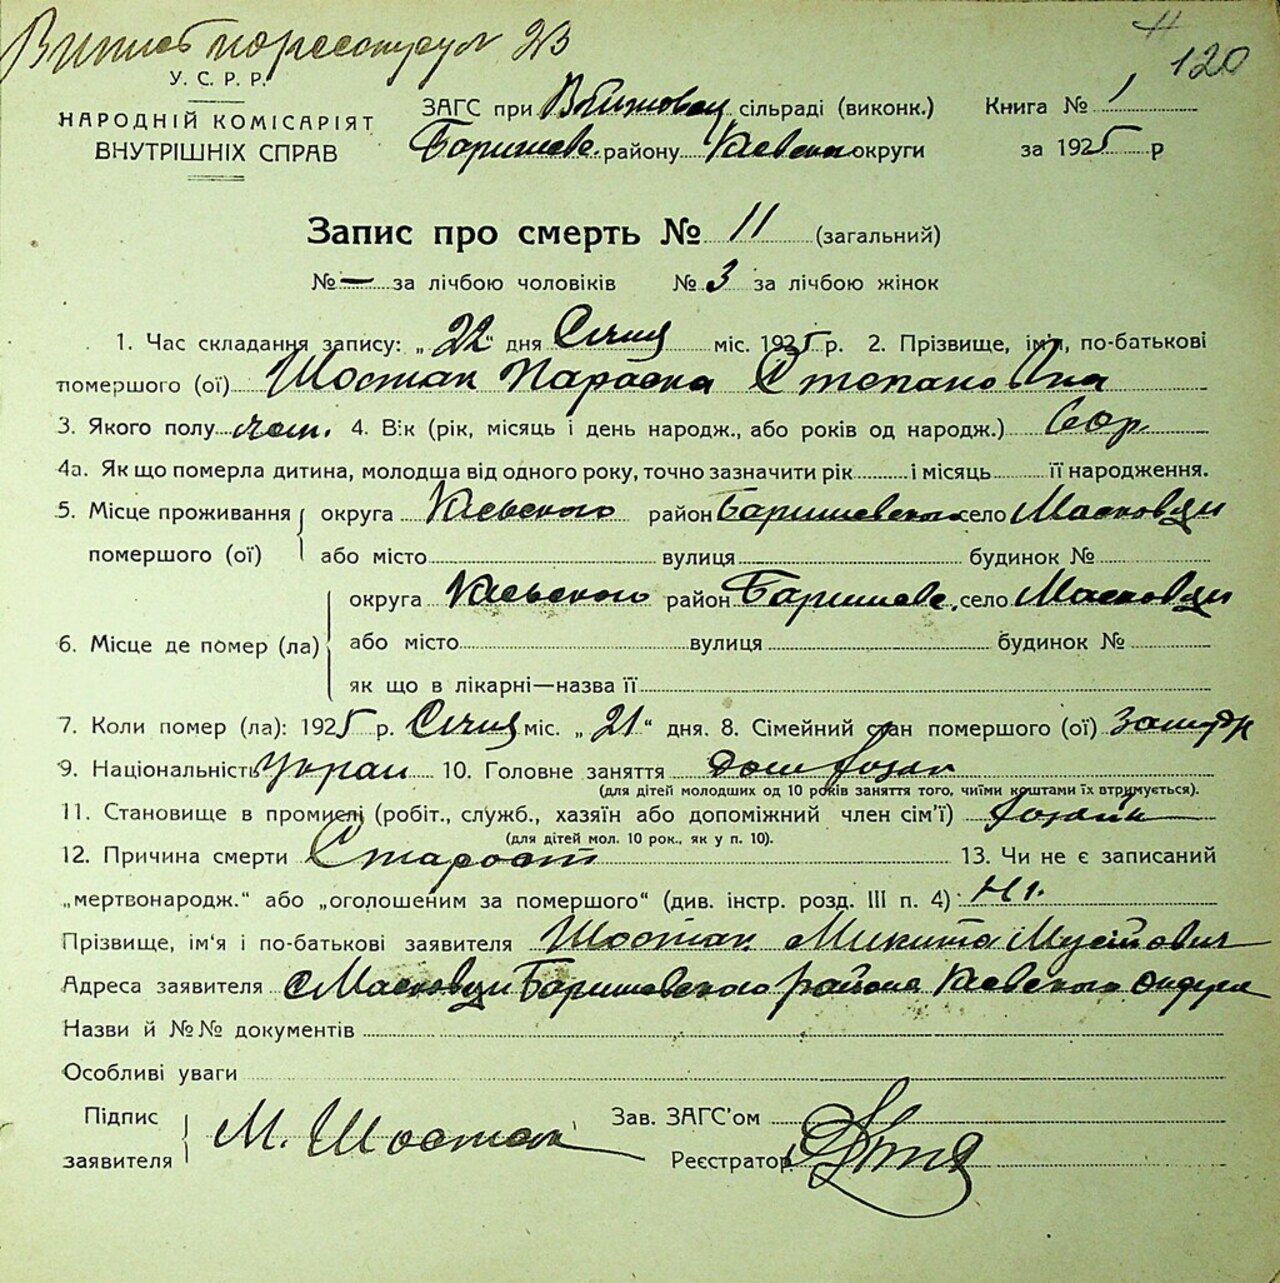 120
У. С. Р. Р.
НАРОДНІЙ КОМІСАРІЯТ
ВНУТРІШНІХ СПРАВ
ЗАГС при сільраді (виконк.) Книга № 1
Баришевс. району Київськ округи за 1925 р
Запис про смерть № 11 (загальний)
№ — за лічбою чоловіків № 3 за лічбою жінок
1. Час складання запису: „22" дня Січня міс. 1925 р. 2. Прізвище, ім'я, по-батькові
помершого (ої) Шостак Параска Степановна
3. Якого полу 4. Вік (рік, місяць і день народж., або років од народж.)
4а. Як що померла дитина, молодша від одного року, точно зазначити рік і місяць її народження.
5. Місце проживання округа Київського район Баришевского село Масковци
помершого (ої) або місто вулиця будинок №
округа Київського район Баришевс. село Масковци
6. Місце де помер (ла) або місто вулиця будинок №
як що в лікарні—назва її
7. Коли помер (ла): 1925 р. Січня міс. „21" дня. 8. Сімейний стан помершого (ої)
9. Національність Украй 10. Головне заняття
(для дітей молодших од 10 років заняття того, чиїми коштами їх втримується).
11. Становище в промислі (робіт., служб., хазяїн або допоміжний член сім'ї)
(для дітей мол. 10 рок., як у п. 10).
12. Причина смерти Старост 13. Чи не є записаний
„мертвонародж." або „оголошеним за помершого" (див. інстр. розд. III п. 4) Ні.
Прізвище, ім'я і по-батькові заявителя Шостак Микита
Адреса заявителя с Масковци Баришевского района Київского округа
Назви й №№ документів
Особливі уваги
Підпис М. Шостак Зав. ЗАГС'ом
заявителя Реєстратор